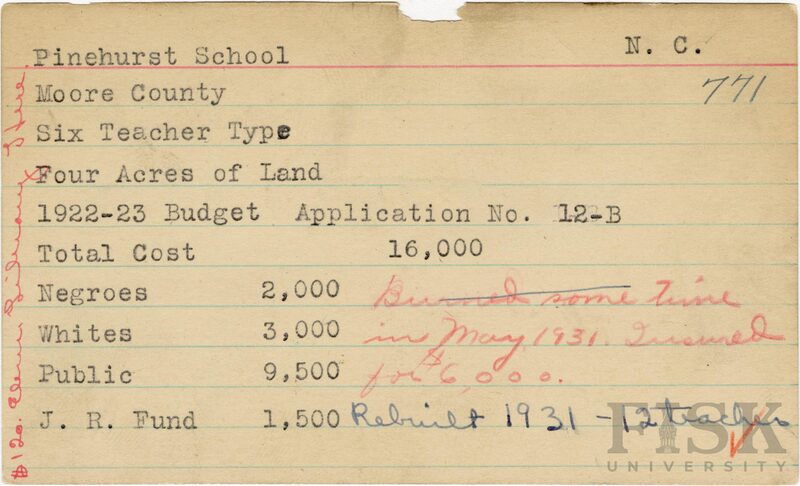 Pinehurst School N. C.
771
Moore County
Six Teacher Type
Four Acres of Land
1922-23 Budget Application No. 12-B
Total Cost 16,000
Negroes 2,000
Whites 3,000
Public 9,500
J. R. Fund 1,500
Burned some time
in May 1931. Insured
for $6,000.
Rebuilt 1931 - 12 teacher
$120. Elem.
FISK
UNIVERSITY